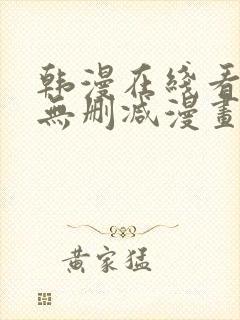 韩漫在线看
無删减漫畫
黄家猛